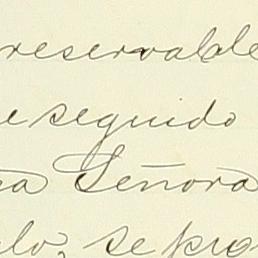 reservalde
e seguido
ea Señora
lo, se pro